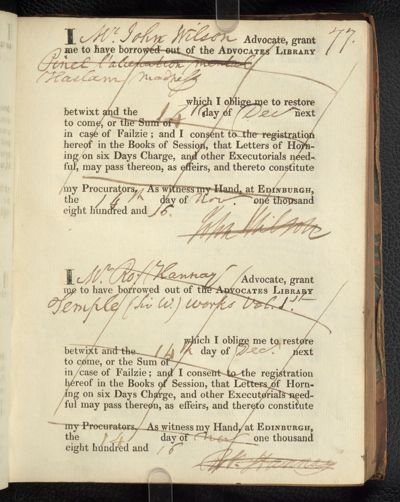 77.
I Mr. John Wilson Advocate, grant
me to have borrowed out of the ADVOCATES LIBRARY
Pinel Alienation mentale
Haslam, madness
which I oblige me to restore
betwixt and the 14th day of Decr next
to come, or the Sum of
in case of Failzie; and I consent to the registration
hereof in the Books of Session, that Letters of Horn-
ing on six Days Charge, and other Executorials need-
ful, may pass thereon, as effeirs, and thereto constitute
my Procurators. As witness my Hand, at EDINBURGH,
the 14th day of Nov. one thousand
eight hundred and 16.
John Wilson
I Mr. Robt Hannay Advocate, grant
me to have borrowed out of the ADVOCATES LIBRARY
Temple (Sir W.) works Vol. 1st
which I oblige me to restore
betwixt and the 14th day of Dec. next
to come, or the Sum of
in case of Failzie; and I consent to the registration
hereof in the Books of Session, that Letters of Horn-
ing on six Days Charge, and other Executorials need-
ful may pass thereon, as effeirs, and thereto constitute
my Procurators. As witness my Hand, at EDINBURGH,
the 14 day of Nov one thousand
eight hundred and 16
Hannay